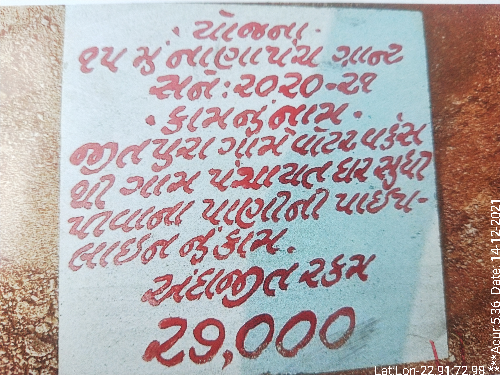 · યોજના ·
૧૫ મું નાણાપંચ ગ્રાન્ટ
સને : ૨૦૨૦-૨૧
· કામનું નામ ·
જીતપુરા ગામે વોટર વર્કસ
થી ગામ પંચાયત ઘર સુધી
પીવાના પાણીની પાઈપ-
લાઇન નું કામ.
અંદાજીત રકમ
૨૭,૦૦૦
Lat:Lon-22.91:72.99
***Accur:5.36 Date: 14-12-2021